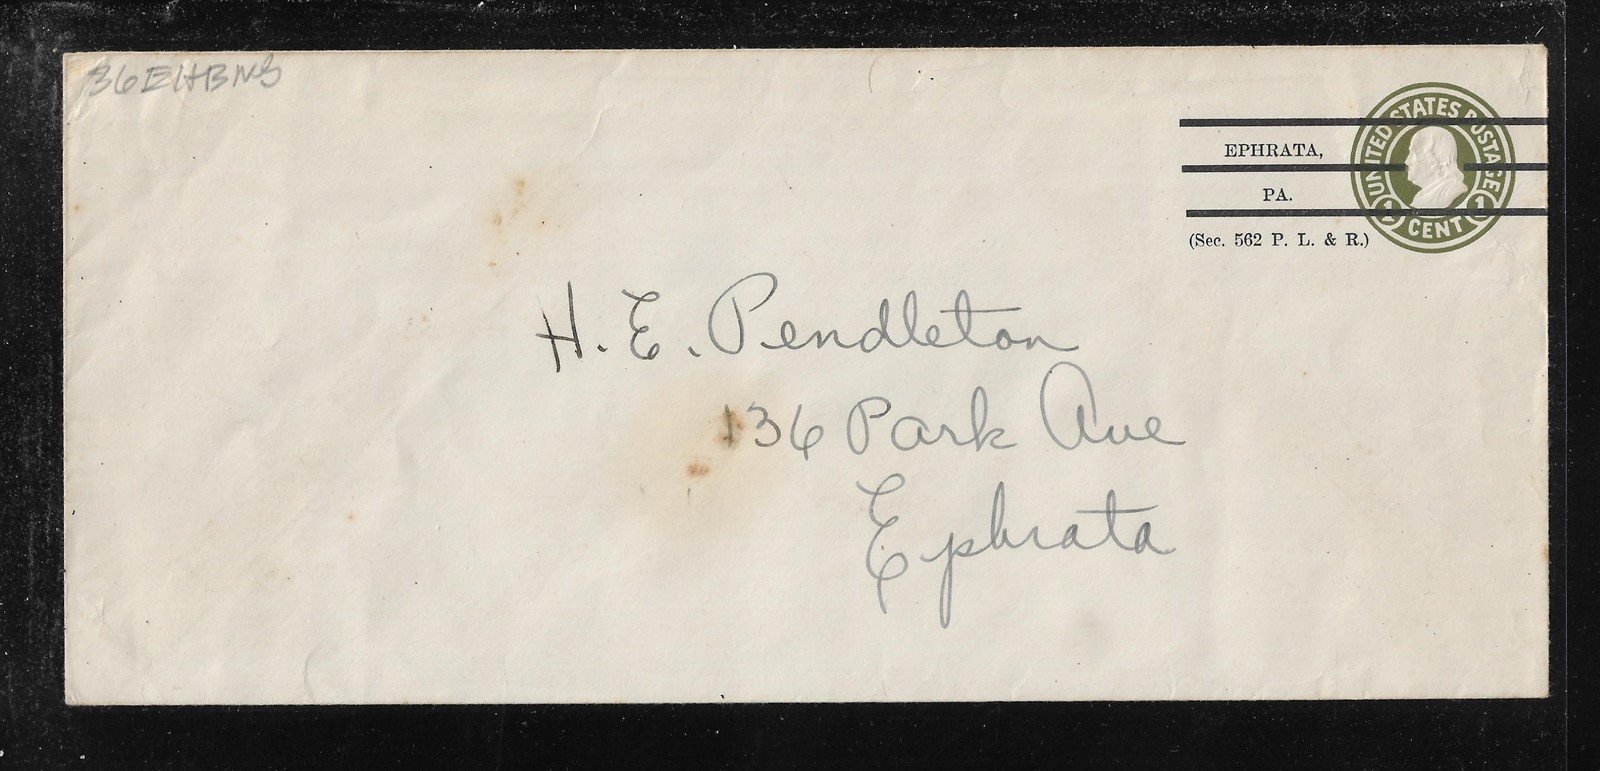 36EHBNS
UNITED STATES POSTAGE
1 CENT 1
EPHRATA,
PA.
(Sec. 562 P. L. & R.)
H. E. Pendleton
136 Park Ave
Ephrata